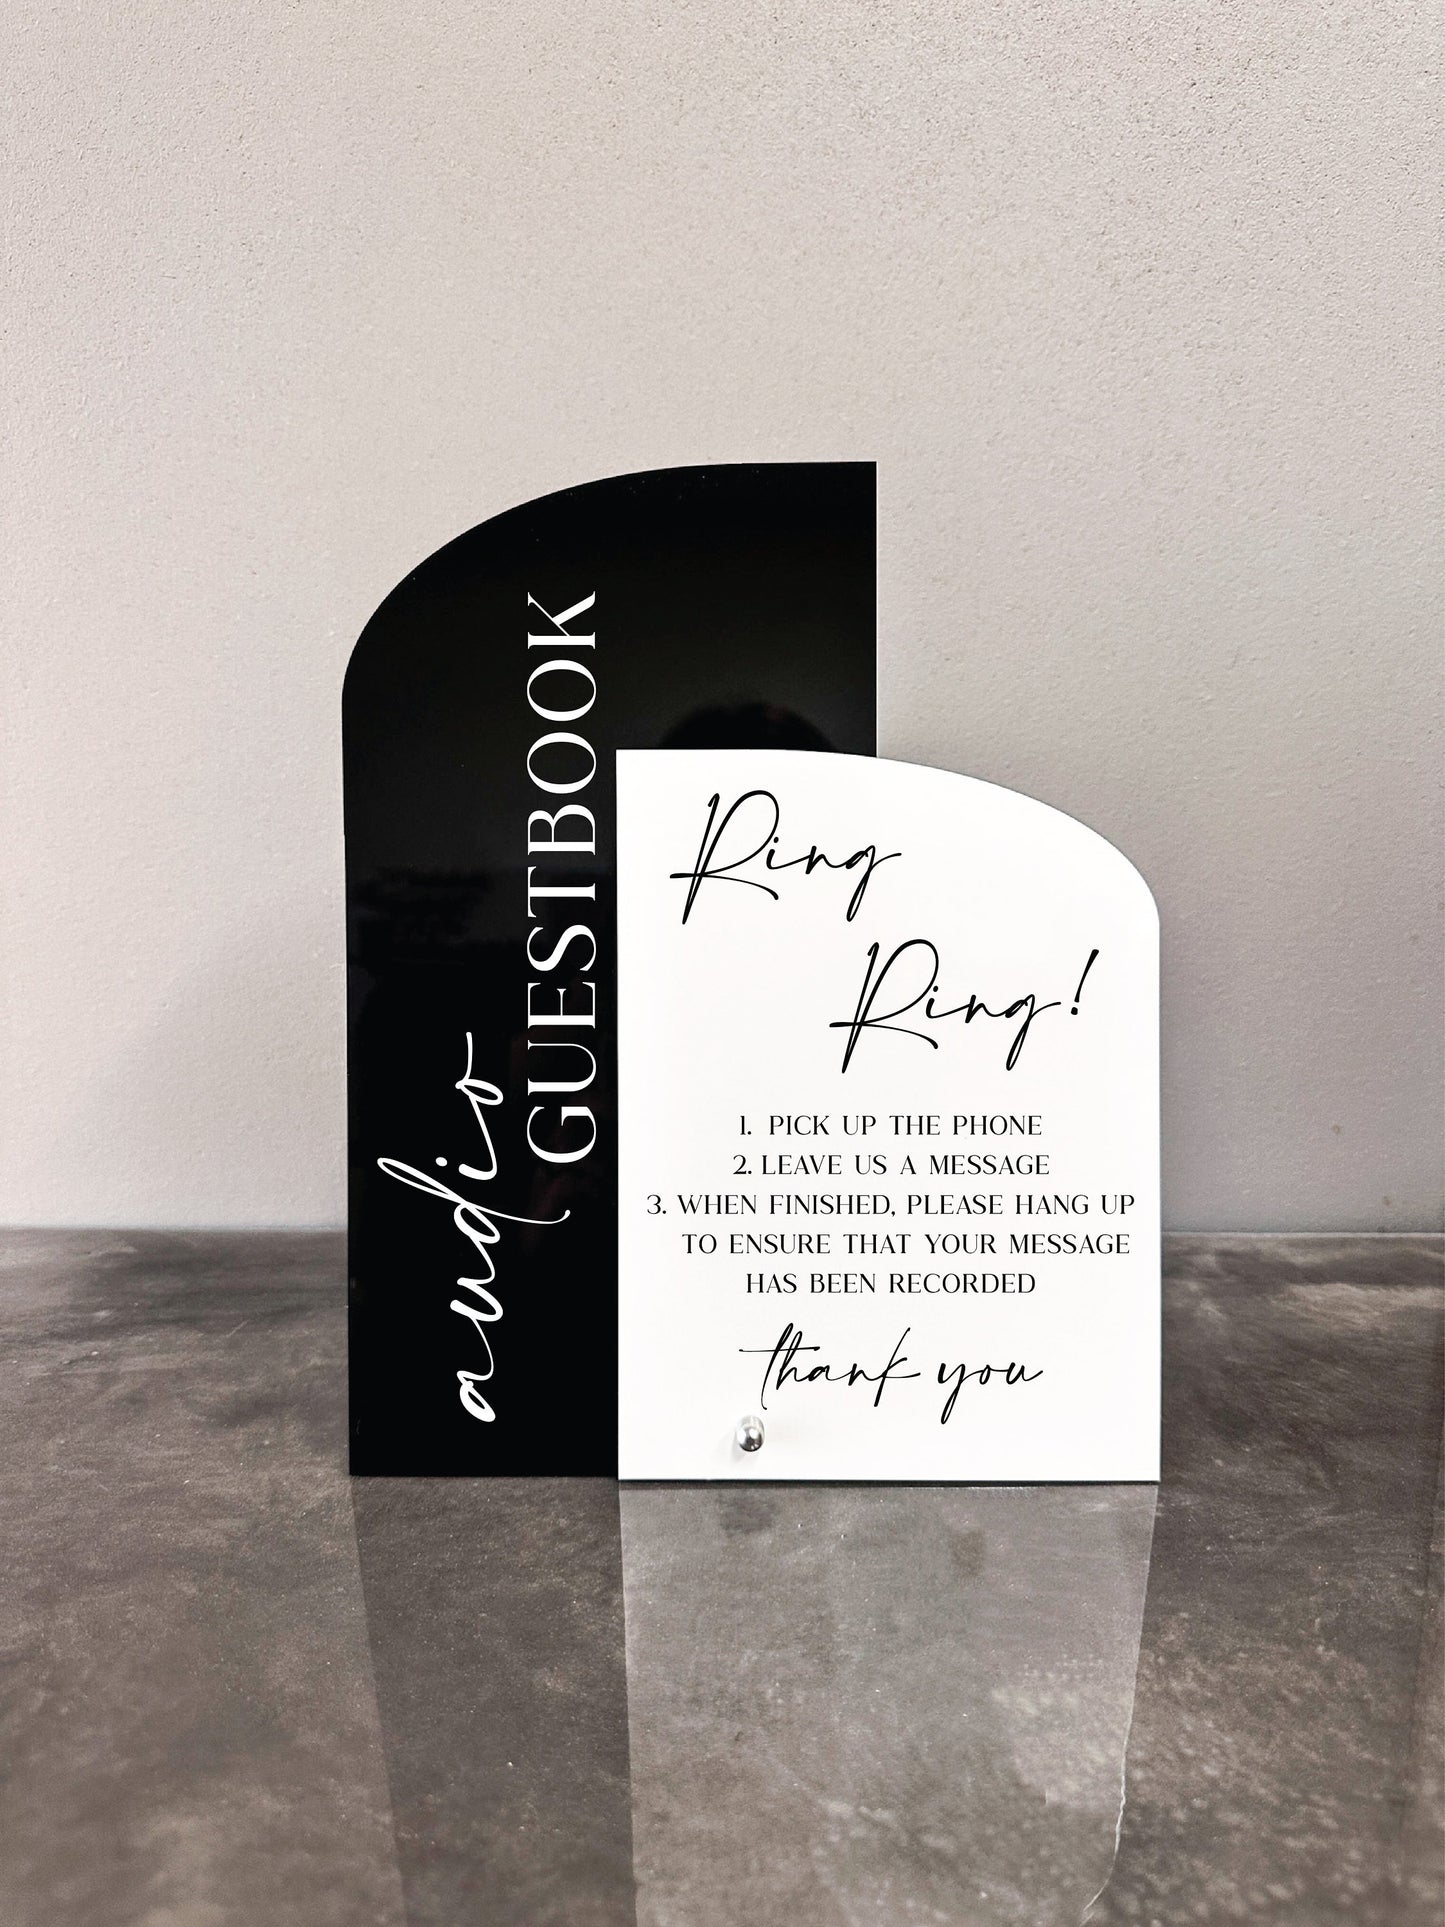 audio
GUESTBOOK
Ring
Ring!
1. PICK UP THE PHONE
2. LEAVE US A MESSAGE
3. WHEN FINISHED, PLEASE HANG UP
TO ENSURE THAT YOUR MESSAGE
HAS BEEN RECORDED
thank you